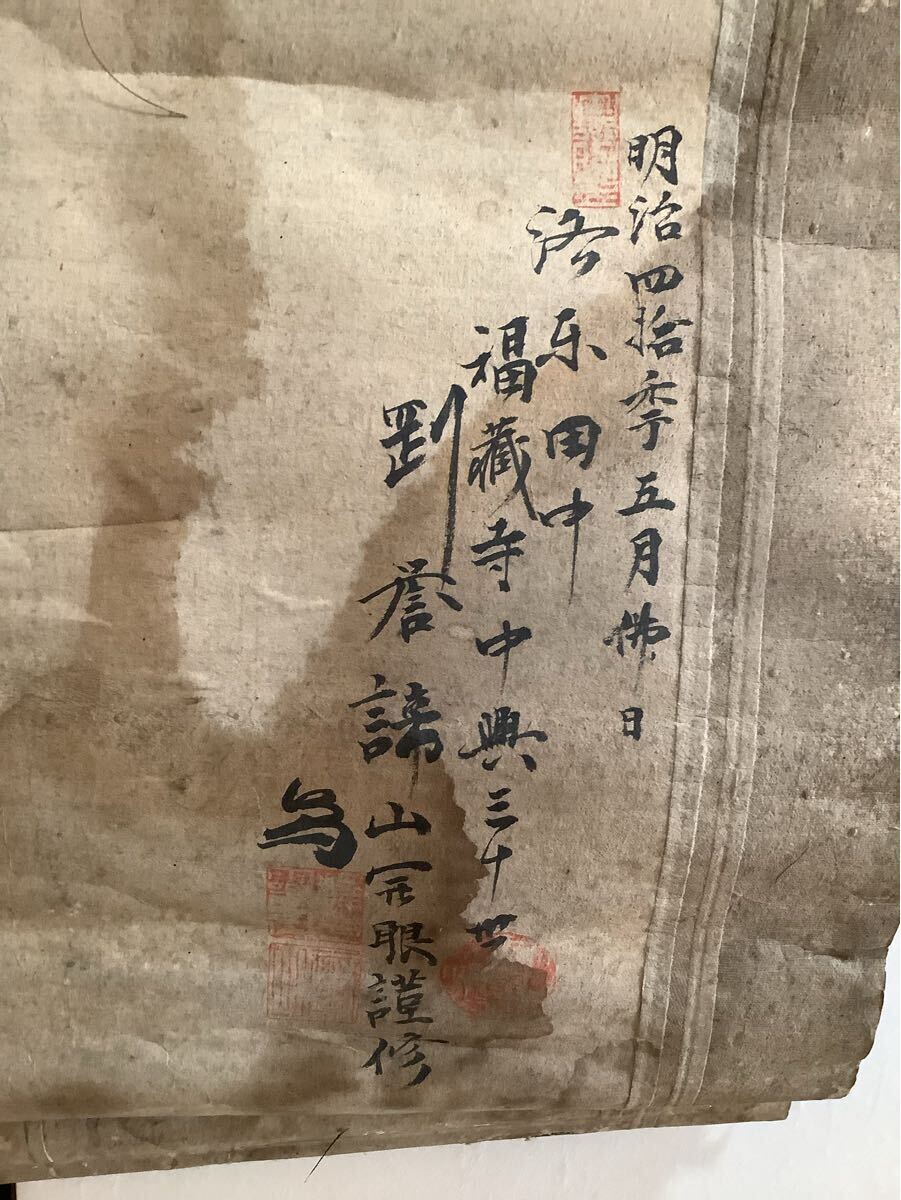 明治四拾季五月佛日
洛东田中
福藏寺中興三十世
剛誉諦山定眼謹修